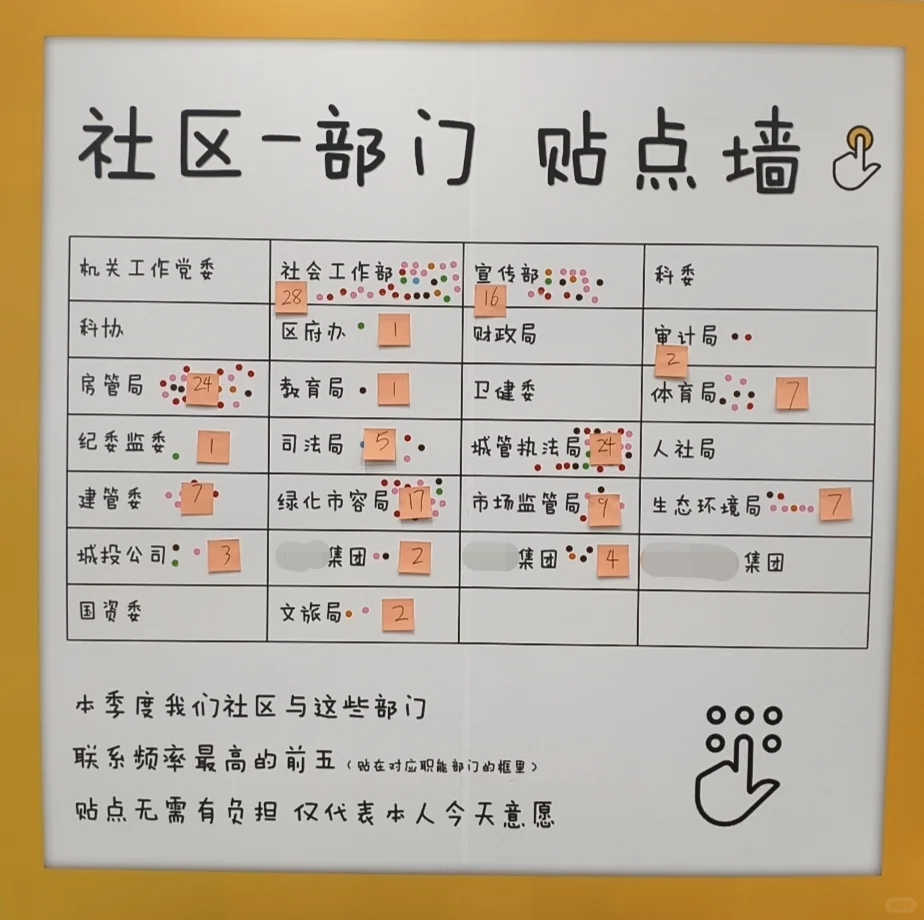 社区—部门 贴点墙
机关工作党委 社会工作部 28 宣传部 16 科委
科协 区府办 1 财政局 审计局 2
房管局 24 教育局 1 卫健委 体育局 7
纪委监委 1 司法局 5 城管执法局 24 人社局
建管委 7 绿化市容局 17 市场监管局 9 生态环境局 7
城投公司 3 集团 2 集团 4 集团
国资委 文旅局 2
本季度我们社区与这些部门
联系频率最高的前五（贴在对应职能部门的框里）
贴点无需有负担 仅代表本人今天意愿